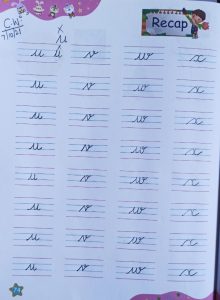 C.W
7/10/21
Recap
x
u
u
u v w x
u v w x
u v w x
u v w x
u v w x
u v w x
u v w x
u v w x